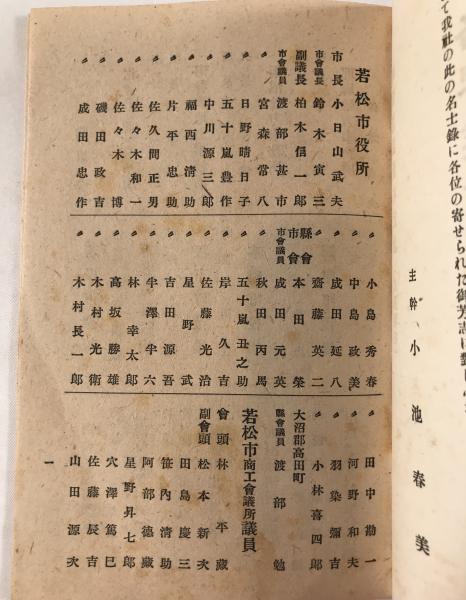 て我社の此の名士錄に各位の寄せられた御芳志に對し
主幹 小池春美
若松市役所
市長 小日山武夫
市會議長 鈴木寅三
副議長 柏木信一郎
市會議員 渡部甚市
〃 宮森常八
〃 日野晴日子
〃 五十嵐豊作
〃 中川源三郎
〃 福西清助
〃 片平忠助
〃 佐久間正男
〃 佐々木和一
〃 佐々木博
〃 磯田政吉
〃 成田忠作
〃 小島秀春
〃 中島政美
〃 成田延八
〃 齋藤英二
縣會市會 本田榮
市會議員 成田元英
〃 秋田丙馬
〃 五十嵐丑之助
〃 岸久吉
〃 佐藤光治
〃 星野武
〃 吉田源吾
〃 半澤半六
〃 林幸太郎
〃 高坂勝雄
〃 木村光衛
〃 木村長一郎
〃 田中勘一
〃 河野和夫
〃 羽染彌吉
〃 小林喜四郎
大沼郡高田町
縣會議員 渡部勉
若松市商工會議所議員
會頭 林平藏
副會頭 松本新次
田島慶三
笹內清助
阿部德藏
星野昇七郎
穴澤篤巳
佐藤辰吉
山田源次
一